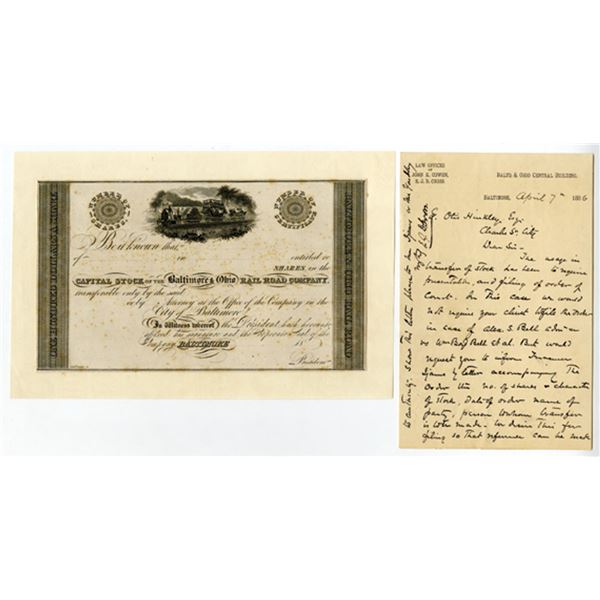 NUMBER OF CERTIFICATE
NUMBER OF
ONE HUNDRED DOLLARS EACH SHARE
ONE HUNDRED DOLLARS EACH SHARE
Be it known that
of in entitled to
SHARES, in the
CAPITAL STOCK OF THE Baltimore & Ohio RAIL ROAD COMPANY,
transferable only by the said
or by Attorney at the Office of the Company in the
City of Baltimore
In Witness whereof the President hath hereunto
Company BALTIMORE 18
President
LAW OFFICES
JOHN K. COWEN,
E. J. D. CROSS.
BALTO & OHIO CENTRAL BUILDING.
BALTIMORE, April 7th 1886
Otis Hinkley, Esq.
Charles St. City
Dear Sir -
The usage in
transfer of stock has been to require
presentation and filing of order of
Court. In this case we would
not require your client
in case of Alex. S. Bell
But would
request you to inform Treasurer
by letter accompanying The
order the no. of shares & character
of stock, date of order name of
party, person to whom transfer
is to be made. We desire this for
filing so that reference can be made